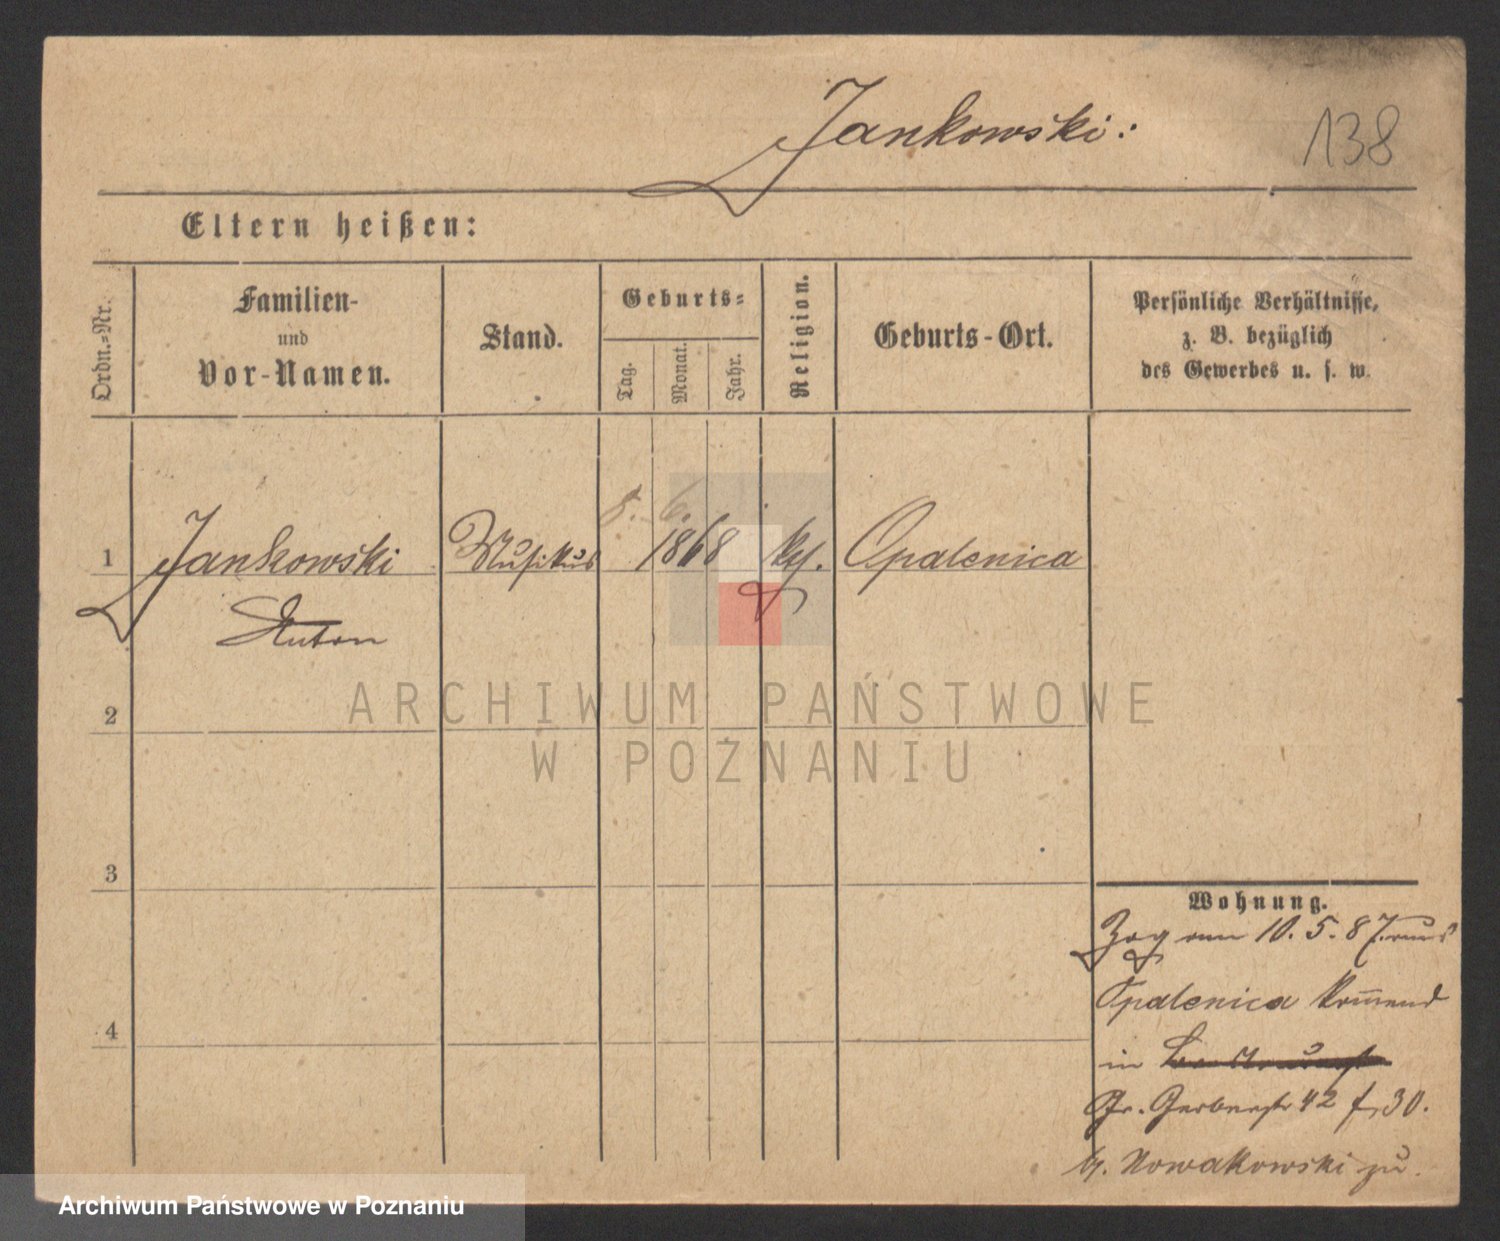 Jankowski:
138
Eltern heißen:
Ordn.-Nr.
Familien-
und
Vor-Namen.
Stand.
Geburts-
Tag.
Monat.
Jahr.
Religion.
Geburts-Ort.
Persönliche Verhältnisse,
z. B. bezüglich
des Gewerbes u. s. w.
1 Jankowski Musikus 8. 6. 1868 kth. Opalenica
Anton
2
3
4
Wohnung.
Zog am 10. 5. 87 aus
Opalenica kommend
in
Gr. Gerberstr 42 f. 30.
b. Nowakowski zu.
ARCHIWUM PAŃSTWOWE
W POZNANIU
Archiwum Państwowe w Poznaniu